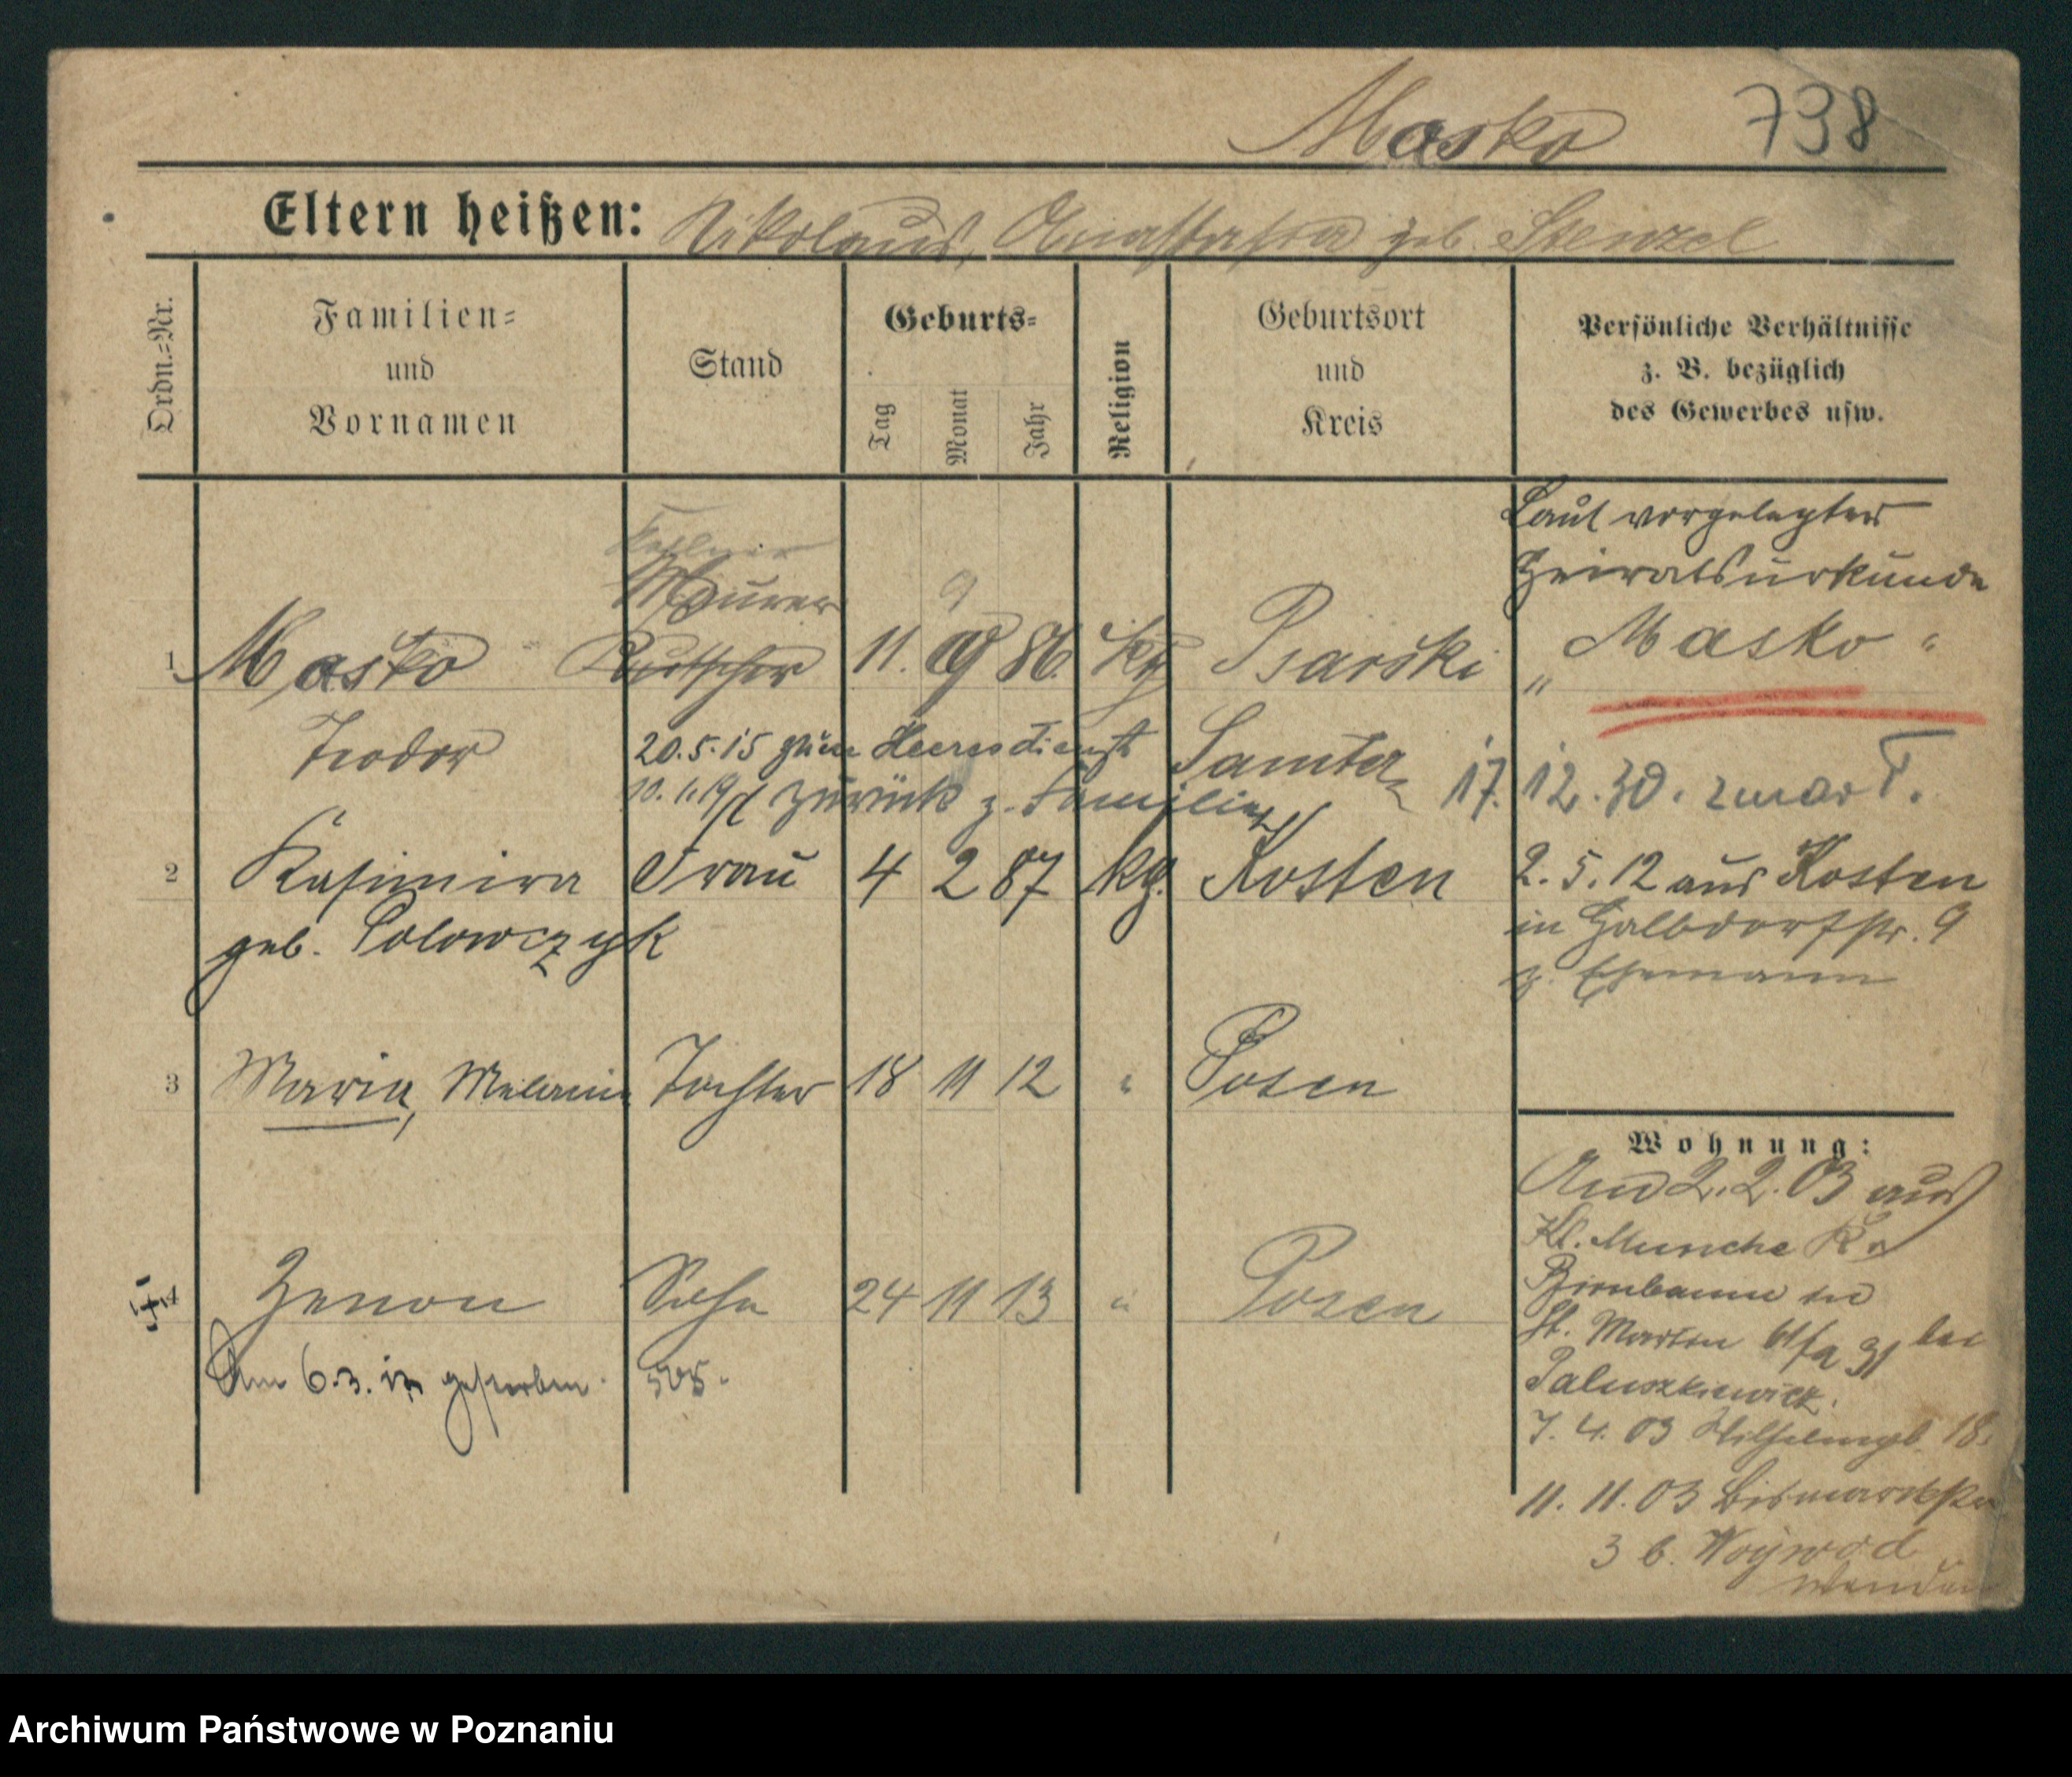 Masko 738
Eltern heißen: Nikolaus, Anastasia geb. Stenzel
Ordn.=Nr.
Familien=
und
Vornamen
Stand
Geburts=
Tag
Monat
Jahr
Religion
Geburtsort
und
Kreis
Persönliche Verhältnisse
z. B. bezüglich
des Gewerbes usw.
Laut vorgelegter
Heiratsurkunde
„Masko“
Maurer
9
1 Masko Kutscher 11. 9 86. kg Psarski
Teodor
20.5.15 zum Heeresdienst
10.1.19 zurück z. Familie
Samter
17.12.30. zmar T.
2 Kasimira Frau 4 2 87 kg. Kosten
geb. Polowczyk
2.5.12 aus Kosten
in Halbdorfstr. 9
z. Ehemann
3 Maria, Melanie Tochter 18 11 12 " Posen
4 Zenon Sohn 24 11 13 " Posen
Am 6.3. gestorben. 505.
Wohnung:
Am 2.2.03 aus
Kl. Munche Kr.
Birnbaum in
St. Martin bei
Paluszkiewicz.
7.4.03 18.
11.11.03 Bismarckstr
3 b. Woywod
wenden
Archiwum Państwowe w Poznaniu